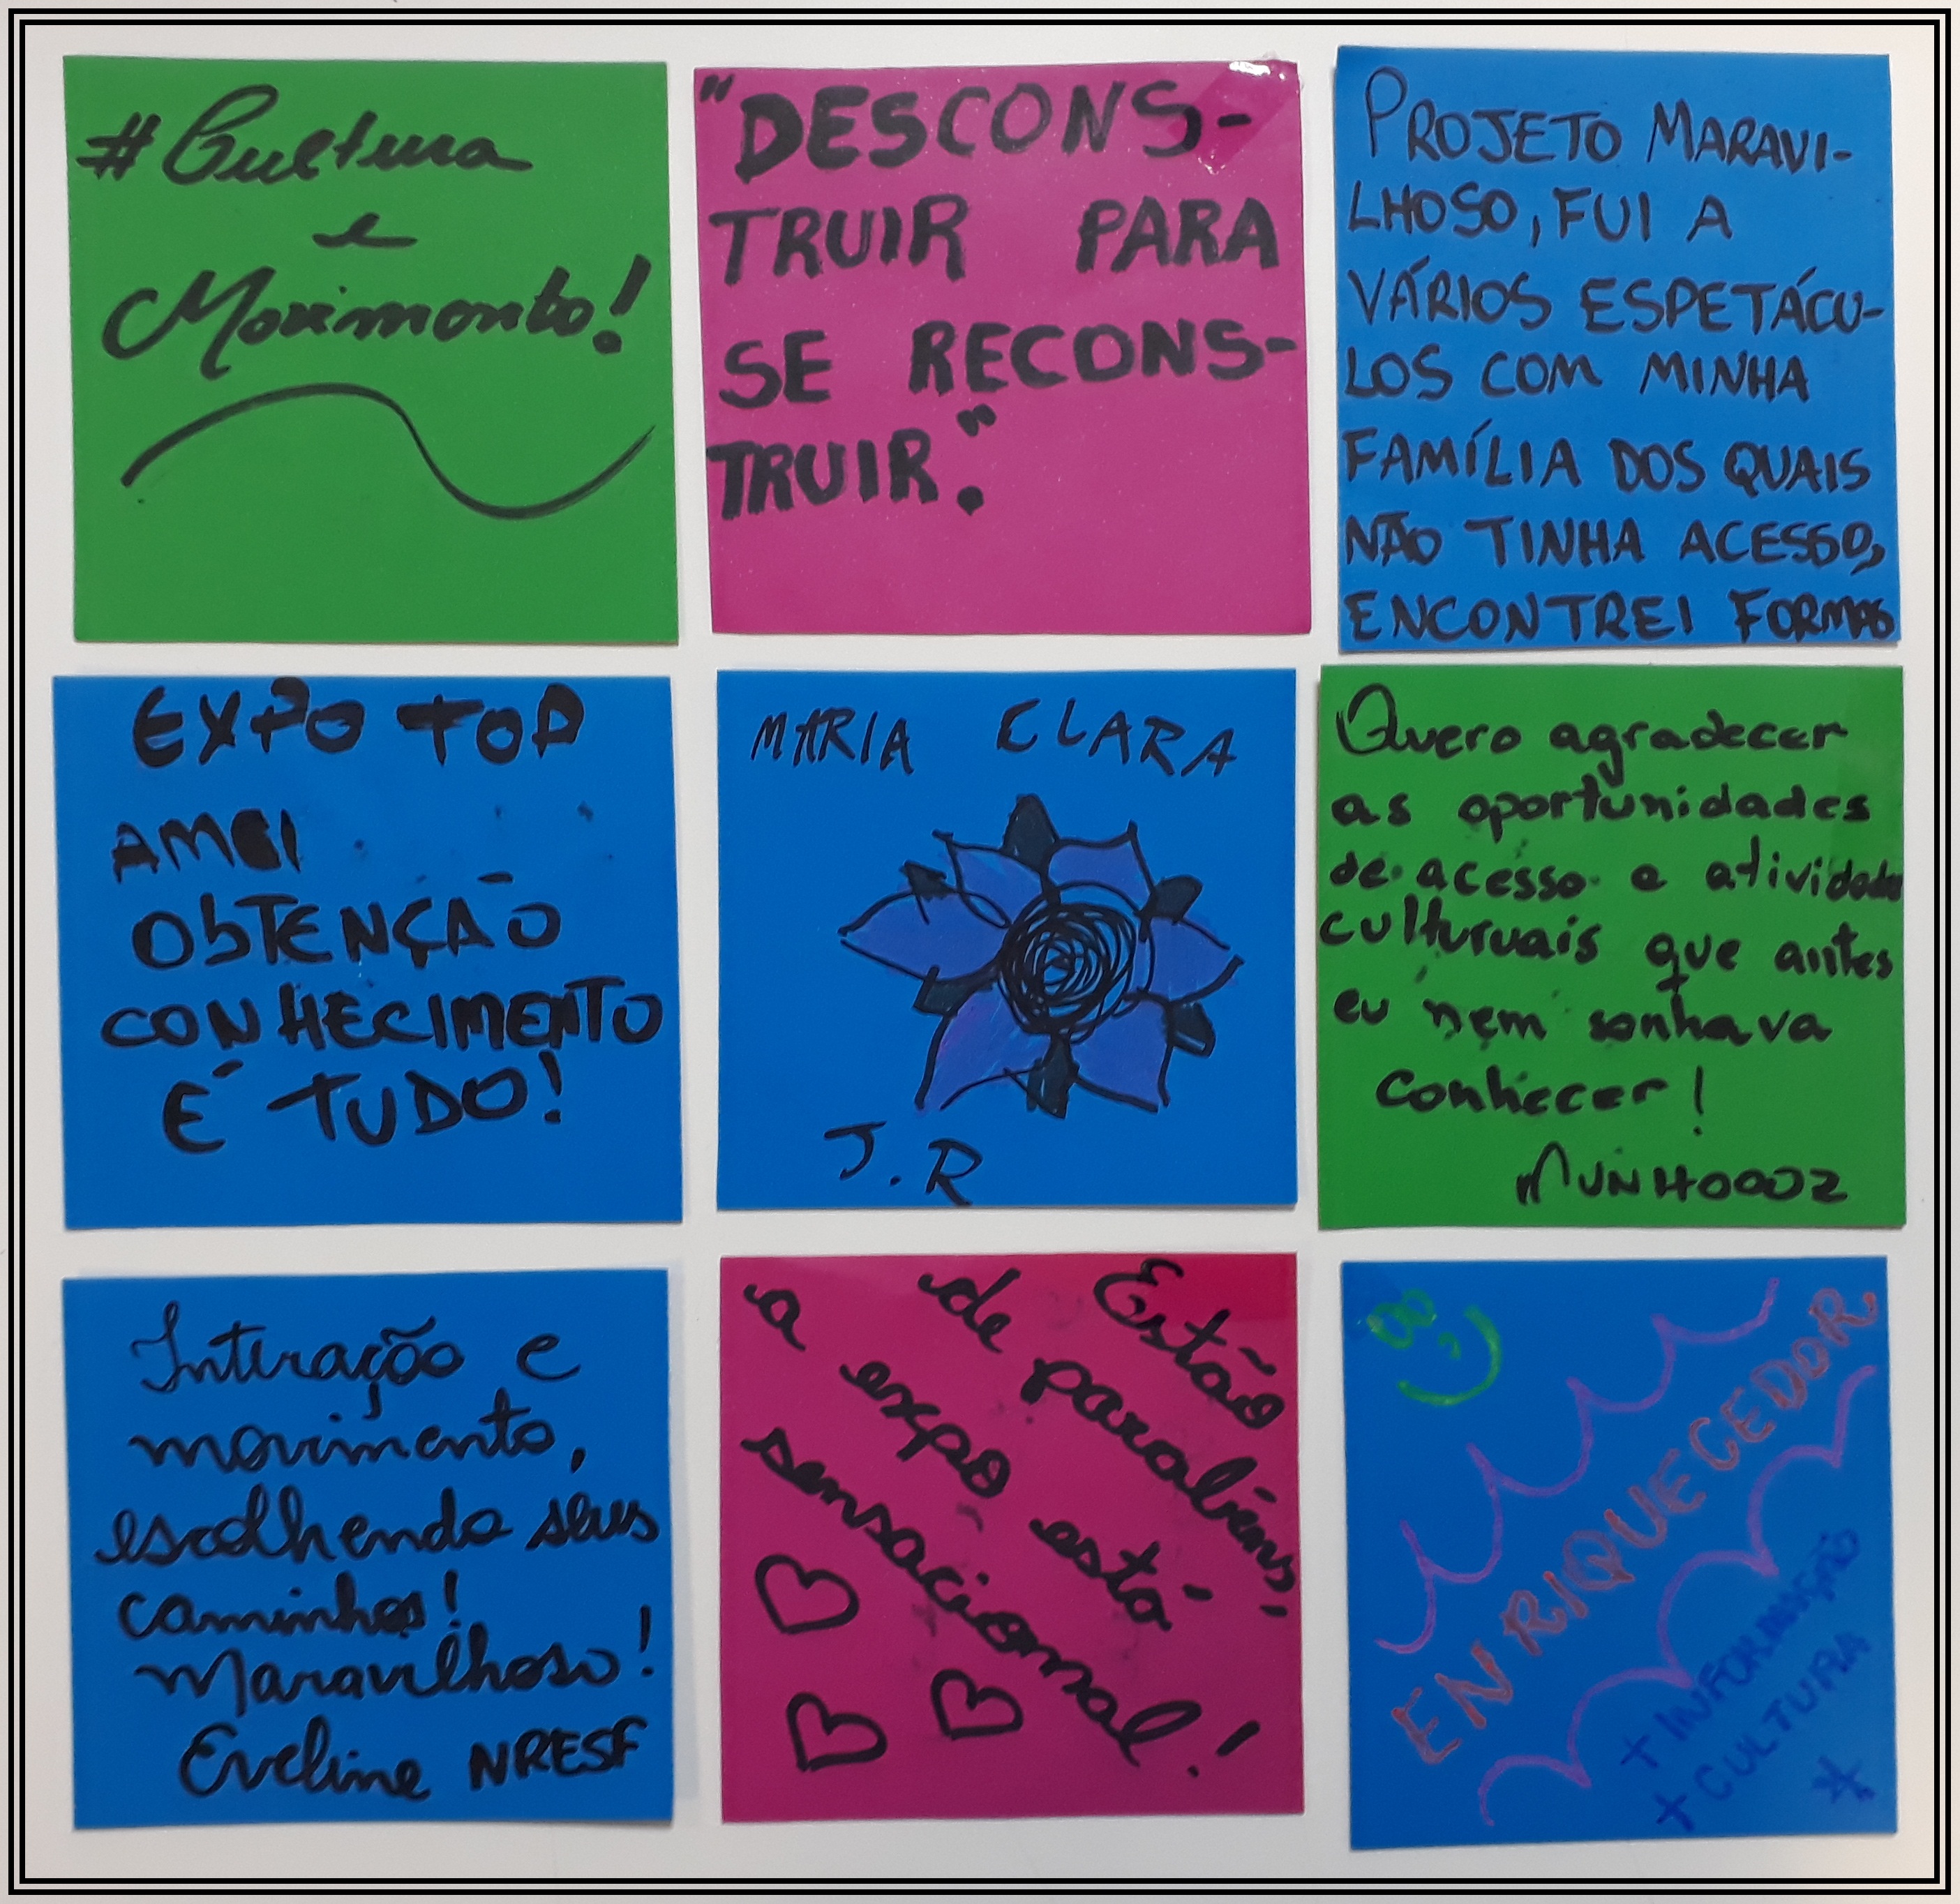 #Cultura
e
Movimento!
"DESCONS-
TRUIR PARA
SE RECONS-
TRUIR."
PROJETO MARAVI-
LHOSO, FUI A
VÁRIOS ESPETÁCU-
LOS COM MINHA
FAMÍLIA DOS QUAIS
NÃO TINHA ACESSO,
ENCONTREI FORMAS
EXPO TOP
AMEI
OBTENÇÃO
CONHECIMENTO
É TUDO!
MARIA CLARA
J.R
Quero agradecer
as oportunidades
de acesso e atividades
culturuais que antes
eu nem sonhava
conhecer!
MUNHOOOZ
Interação e
movimento,
escolhendo seus
caminhos!
Maravilhoso!
Eveline NRESF
Estão
de parabéns,
a expo está
sensacional!
ENRIQUECEDOR
+ INFORMAÇÃO
+ CULTURA